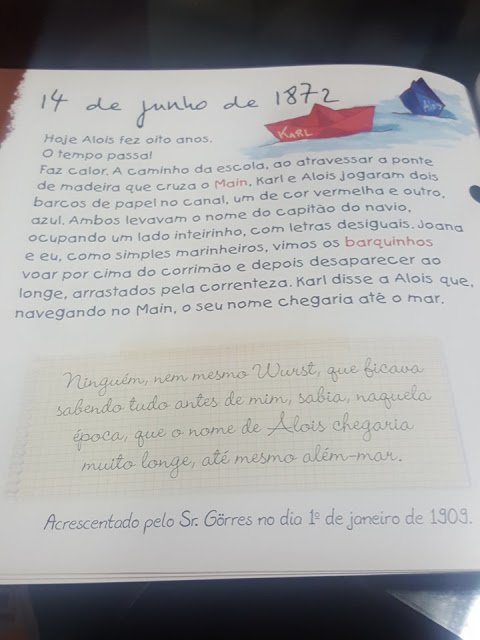 14 de junho de 1872
KARL
Alois
Hoje Alois fez oito anos.
O tempo passa!
Faz calor. A caminho da escola, ao atravessar a ponte
de madeira que cruza o Main, Karl e Alois jogaram dois
barcos de papel no canal, um de cor vermelha e outro,
azul. Ambos levavam o nome do capitão do navio,
ocupando um lado inteirinho, com letras desiguais. Joana
e eu, como simples marinheiros, vimos os barquinhos
voar por cima do corrimão e depois desaparecer ao
longe, arrastados pela correnteza. Karl disse a Alois que,
navegando no Main, o seu nome chegaria até o mar.
Ninguém, nem mesmo Wurst, que ficava
sabendo tudo antes de mim, sabia, naquela
época, que o nome de Alois chegaria
muito longe, até mesmo além-mar.
Acrescentado pelo Sr. Görres no dia 1º de janeiro de 1909.